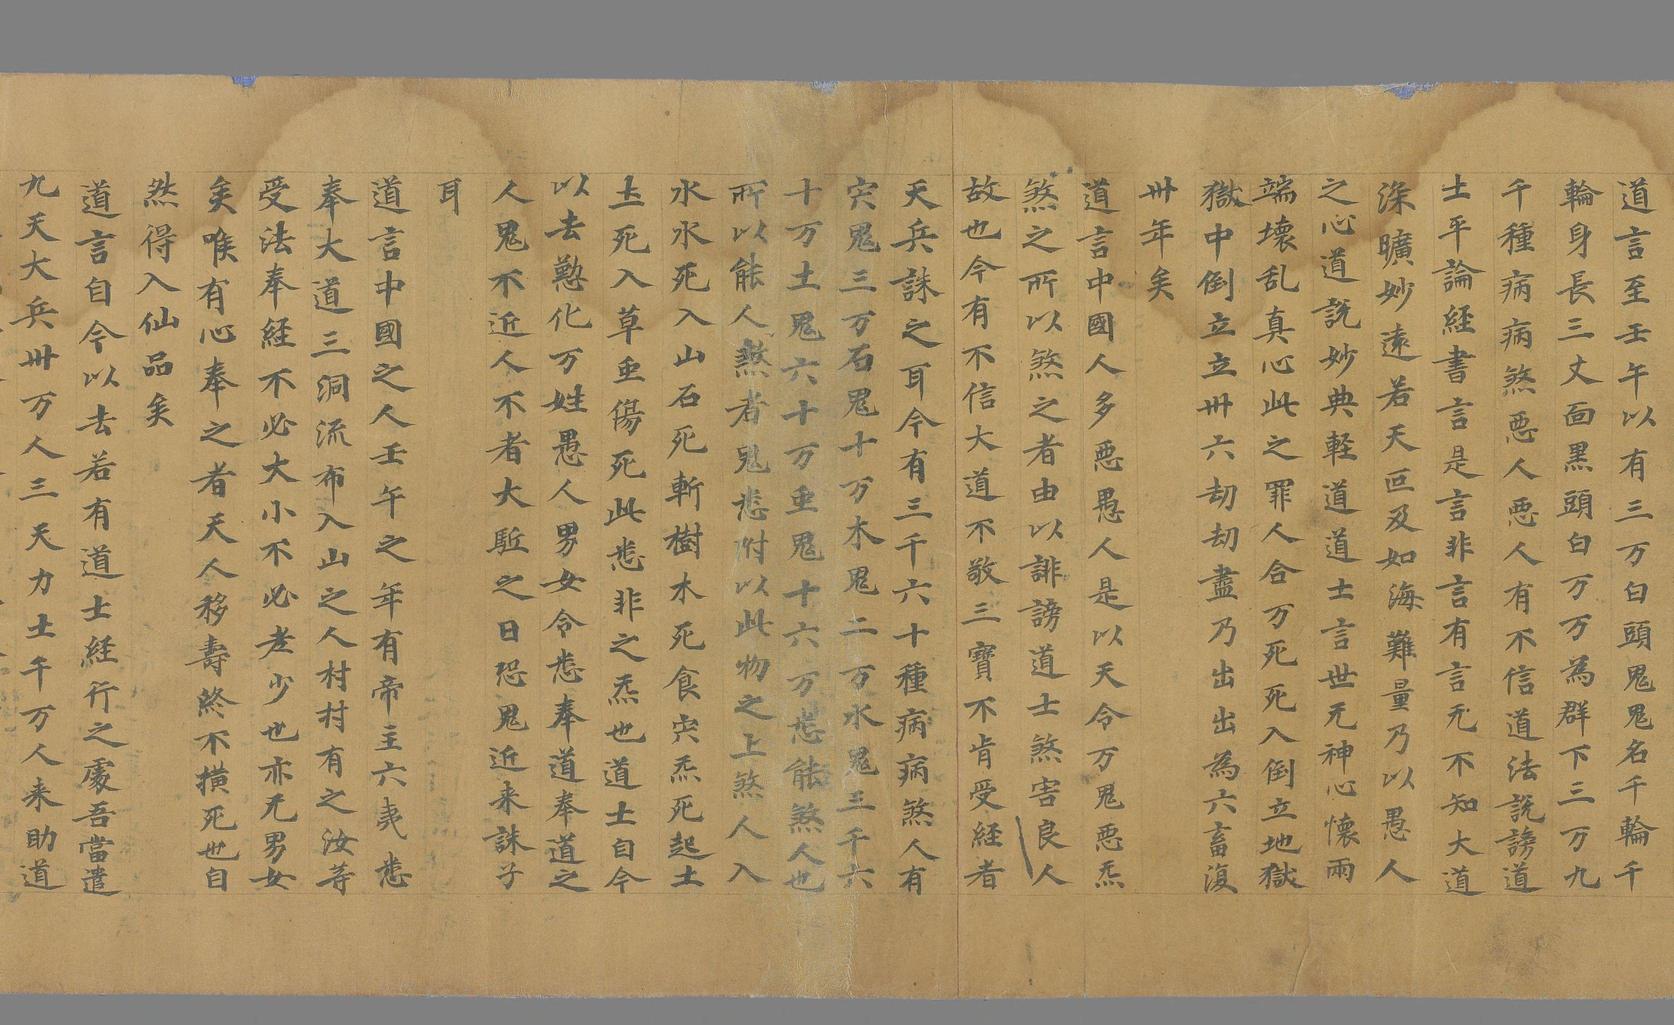 道言至壬午以有三万白頭鬼鬼名千輪千
輪身長三丈面黒頭白万万為群下三万九
千種病病煞悪人悪人有不信道法説謗道
士平論経書言是言非言有言无不知大道
深曠妙遠若天叵及如海難量乃以愚人
之心道説妙典軽道道士言世无神心懐兩
端壊乱真心此之罪人合万死死入倒立地獄
獄中倒立立卅六劫劫盡乃出出為六畜復
卅年矣
道言中國人多悪愚人是以天令万鬼悪炁
煞之所以煞之者由以誹謗道士煞害良人
故也今有不信大道不敬三寶不肯受経者
天兵誅之耳今有三千六十種病病煞人有
宍鬼三万石鬼十万木鬼二万水鬼三千六
十万土鬼六十万虫鬼十六万悉能煞人也
所以能人煞者鬼悉附以此物之上煞人入
水水死入山石死斬樹木死食宍炁死起土
土死入草虫傷死此悉非之炁也道士自今
以去懃化万姓愚人男女令悉奉道奉道之
人鬼不近人不者大駈之日恐鬼近来誅子
耳
道言中國之人壬午之年有帝主六夷悉
奉大道三洞流布入山之人村村有之汝等
受法奉経不必大小不必老少也亦无男女
矣唯有心奉之者天人移壽終不横死也自
然得入仙品矣
道言自今以去若有道士経行之處吾當遣
九天大兵卅万人三天力士千万人来助道